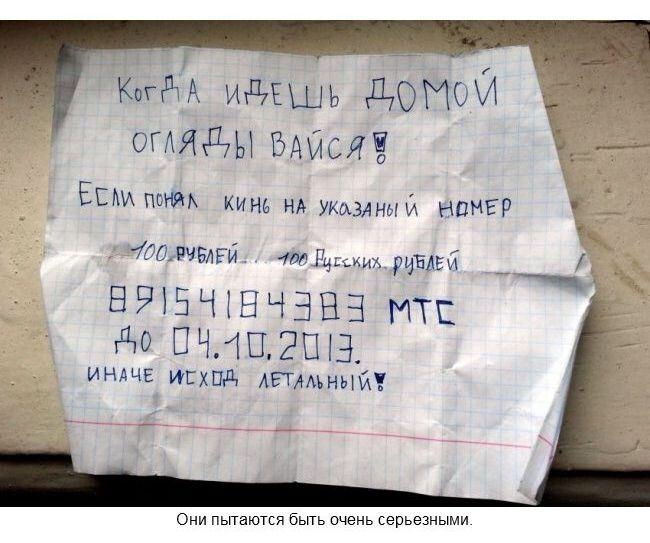 КогДА ИДЕШЬ ДОМОЙ
ОГЛЯДЫ ВАЙСЯ!
ЕСЛИ ПОНЯЛ КИНЬ НА УКАЗАНЫЙ НОМЕР
100 РУБЛЕЙ.... 100 Русских РУБЛЕЙ
89154184383 МТС
ДО 04.10.2013.
ИНАЧЕ ИСХОД ЛЕТАЛЬНЫЙ!
Они пытаются быть очень серьезными.